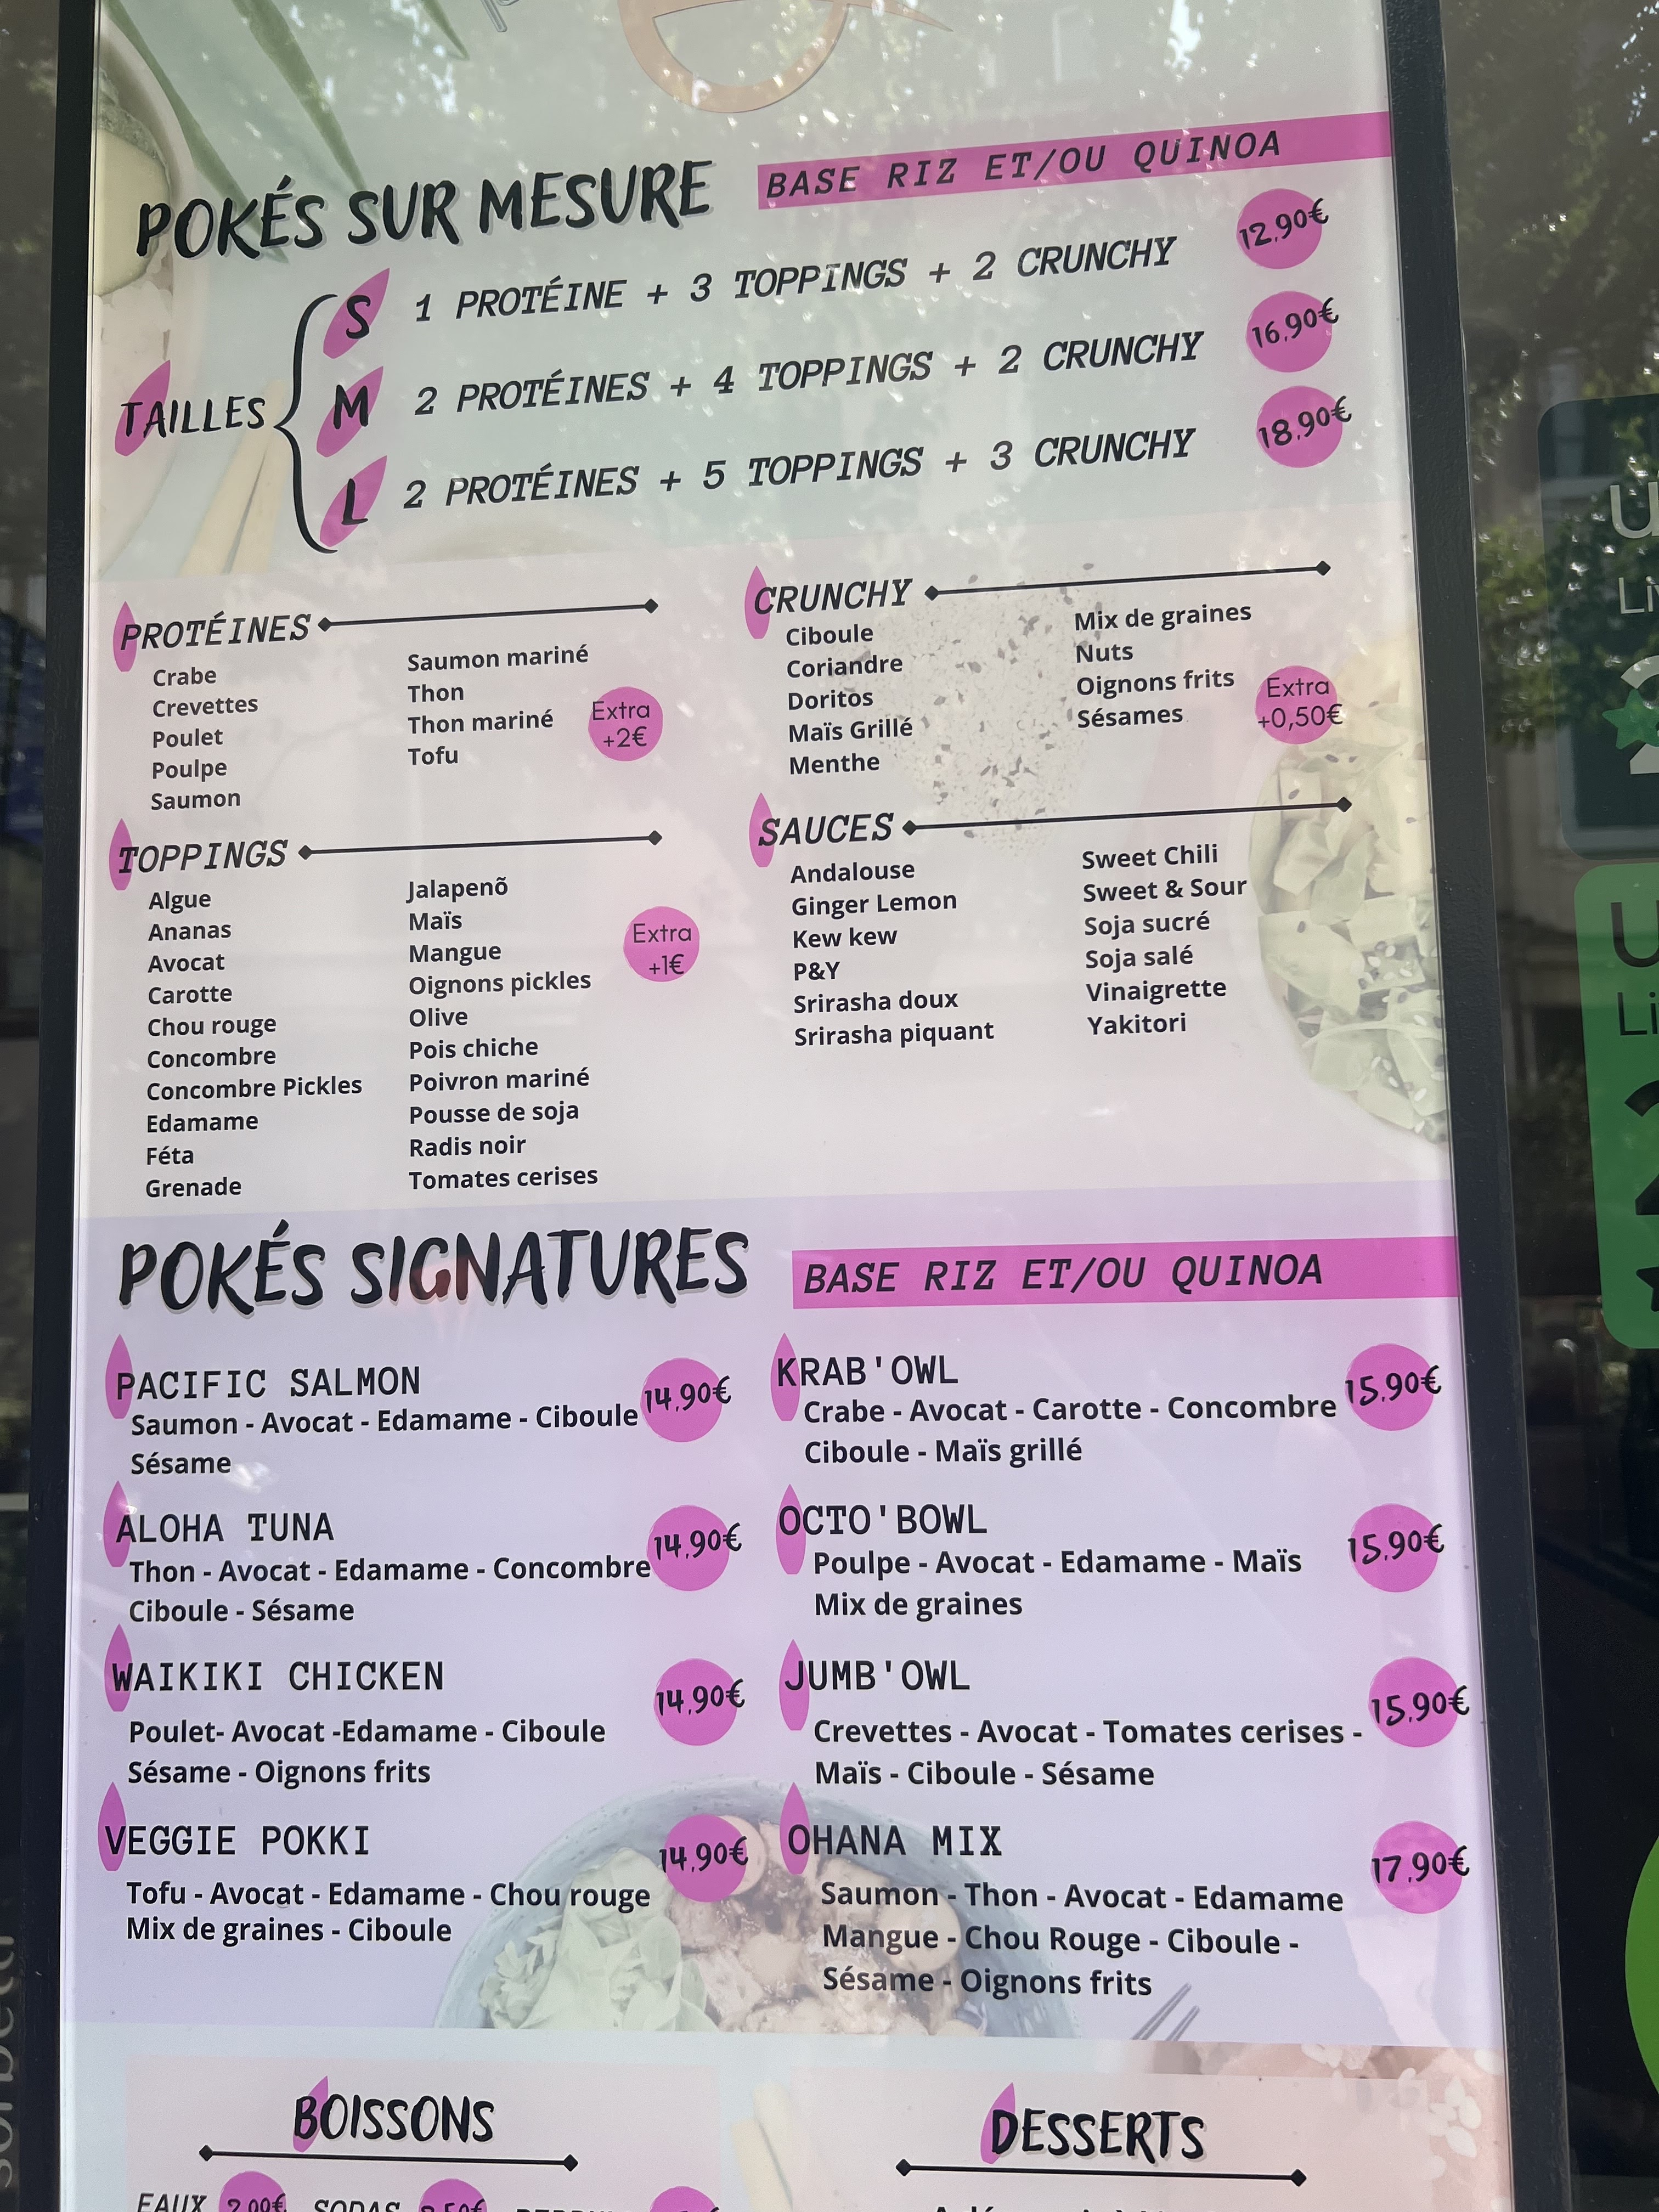 POKÉS SUR MESURE
BASE RIZ ET/OU QUINOA
TAILLES
S 1 PROTÉINE + 3 TOPPINGS + 2 CRUNCHY 12,90€
M 2 PROTÉINES + 4 TOPPINGS + 2 CRUNCHY 16,90€
L 2 PROTÉINES + 5 TOPPINGS + 3 CRUNCHY 18,90€
PROTÉINES
Crabe
Crevettes
Poulet
Poulpe
Saumon
Saumon mariné
Thon
Thon mariné
Tofu
Extra
+2€
CRUNCHY
Ciboule
Coriandre
Doritos
Maïs Grillé
Menthe
Mix de graines
Nuts
Oignons frits
Sésames
Extra
+0,50€
TOPPINGS
Algue
Ananas
Avocat
Carotte
Chou rouge
Concombre
Concombre Pickles
Edamame
Féta
Grenade
Jalapenõ
Maïs
Mangue
Oignons pickles
Olive
Pois chiche
Poivron mariné
Pousse de soja
Radis noir
Tomates cerises
Extra
+1€
SAUCES
Andalouse
Ginger Lemon
Kew kew
P&Y
Srirasha doux
Srirasha piquant
Sweet Chili
Sweet & Sour
Soja sucré
Soja salé
Vinaigrette
Yakitori
POKÉS SIGNATURES
BASE RIZ ET/OU QUINOA
PACIFIC SALMON
Saumon - Avocat - Edamame - Ciboule
Sésame
14,90€
ALOHA TUNA
Thon - Avocat - Edamame - Concombre
Ciboule - Sésame
14,90€
WAIKIKI CHICKEN
Poulet- Avocat -Edamame - Ciboule
Sésame - Oignons frits
14,90€
VEGGIE POKKI
Tofu - Avocat - Edamame - Chou rouge
Mix de graines - Ciboule
14,90€
KRAB'OWL
Crabe - Avocat - Carotte - Concombre
Ciboule - Maïs grillé
15,90€
OCTO'BOWL
Poulpe - Avocat - Edamame - Maïs
Mix de graines
15,90€
JUMB'OWL
Crevettes - Avocat - Tomates cerises -
Maïs - Ciboule - Sésame
15,90€
OHANA MIX
Saumon - Thon - Avocat - Edamame
Mangue - Chou Rouge - Ciboule -
Sésame - Oignons frits
17,90€
BOISSONS
EAUX 2,00€ SODAS
DESSERTS